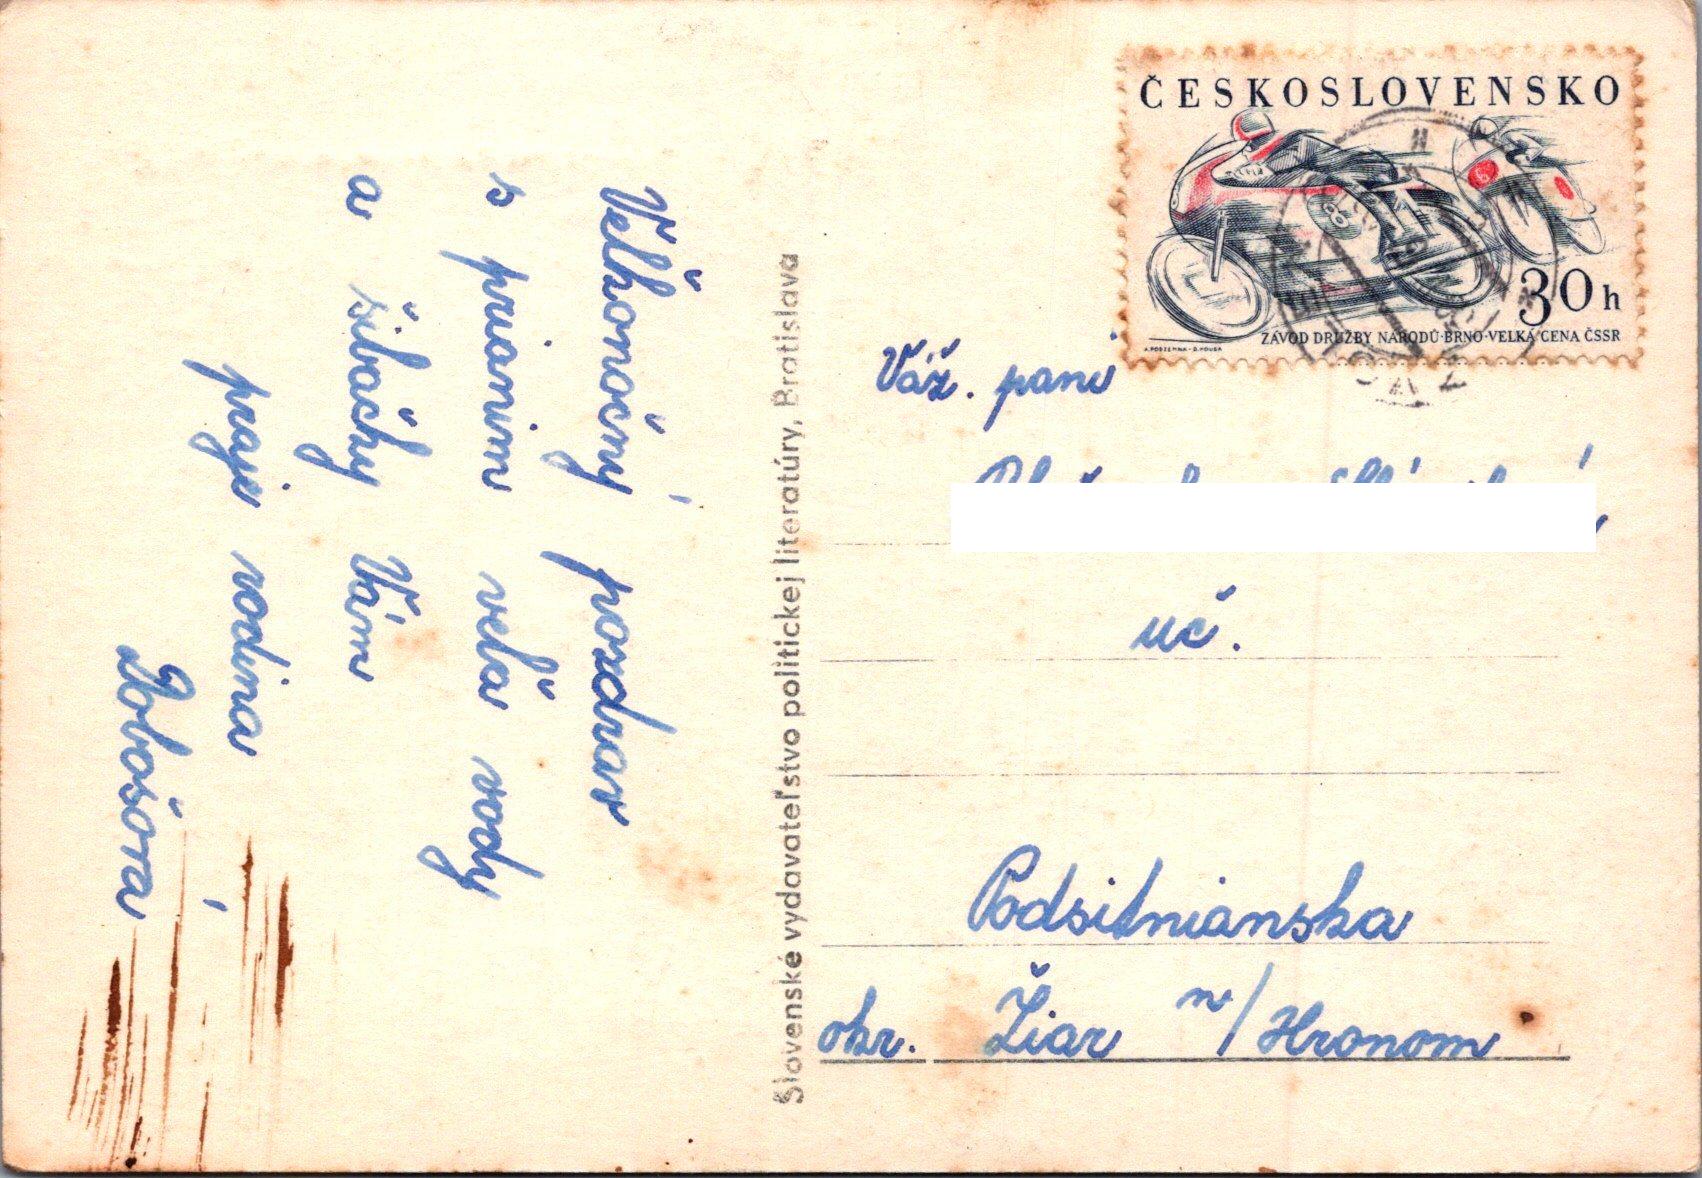 Veľkonočný pozdrav
s prianim veľa vody
a šibačky Vám
praje rodina
Bobošová
Slovenské vydavateľstvo politickej literatúry, Bratislava
ČESKOSLOVENSKO
30 h
ZÁVOD DRUŽBY NÁRODŮ·BRNO·VELKÁ CENA ČSSR
Váž. pani
uč.
Podsitnianska
okr. Žiar n/Hronom